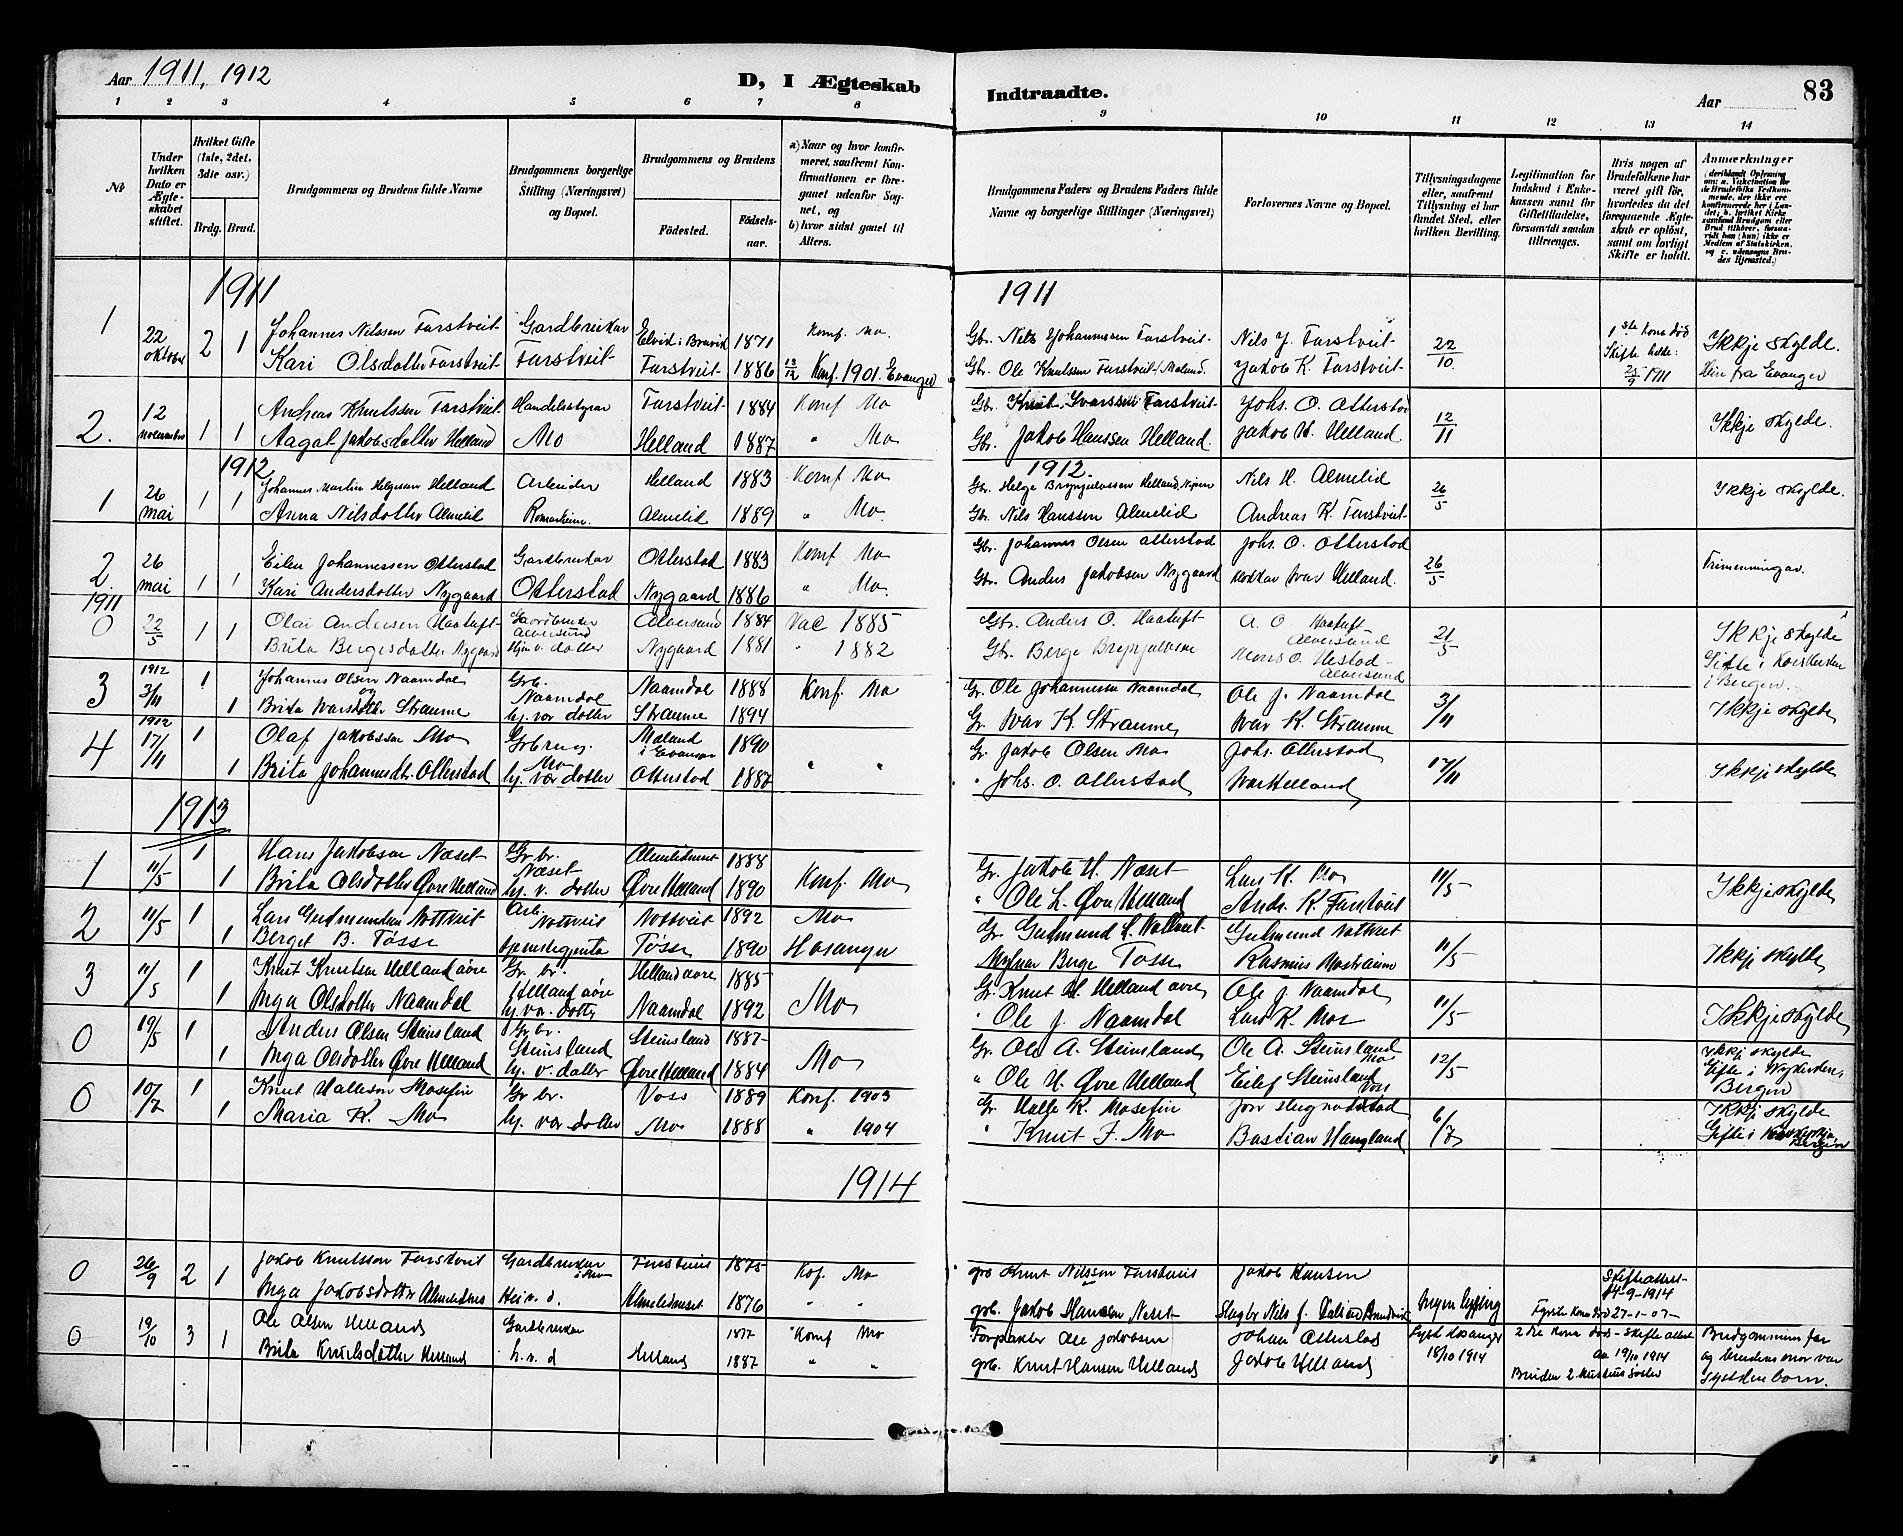 Aar 1911, 1912
D, I Ægteskab
Indtraadte.
Aar 83
1 2 3 4 5 6 7 8 9 10 11 12 13 14
No
Under hvilken Dato er Ægteskabet stiftet.
Hvilket Gifte (1ste, 2det, 3die osv.)
Brdg. Brud.
Brudgommens og Brudens fulde Navne
Brudgommens borgerlige Stilling (Næringsvei) og Bopæl.
Brudgommens og Brudens
Födested. Födselsaar.
a) Naar og hvor konfirmeret, saafremt Konfirmationen er foregaaet udenfor Sognet, og
b) hvor sidst gaaet til Alters.
Brudgommens Faders og Brudens Faders fulde Navne og borgerlige Stillinger (Næringsvei)
Forlovernes Navne og Bopæl.
Tillysningsdagene eller, saafremt Tillysning ei har fundet Sted, efter hvilken Bevilling.
Legitimation for Indskud i Enkekassen samt for Giftetilladelse, forsaavidt saadan tiltrænges.
Hvis nogen af Brudefolkene har været gift för, hvorledes da det foregaaende Ægteskab er oplöst, samt om lovligt Skifte er holdt.
Anmærkninger
1911 1911
1 22 oktober 2 1 Johannes Nilssen Farstveit Gardbrukar 1871 Konf. Mo Gbr. Nils Johannessen Farstveit Nils J. Farstveit 22/10 1ste kona död Ikkje skylde.
Kari Olsdotter Farstveit Farstveit Farstveit 1886 Konf. 1901. Evanger Gbr. Ole Knutssen Farstveit Jakob K. Farstveit 25/9 1911 Evanger
2. 12 november 1 1 Andreas Knutssen Farstveit Handelsstyrar Farstveit 1884 Konf Mo Gbr. Knut Ivarssen Farstveit Johs. O. Otterstad 12/11 Ikkje skylde.
Aagot Jakobsdotter Helland Mo Helland 1887 " Mo Gbr. Jakob Hanssen Helland. Jakob H. Helland.
1912 1912.
1 26 mai 1 1 Johannes Martin Helgesen Helland Arbeider Helland 1883 Konf Mo Gbr. Helge Brynjulvssen Helland, Nils H. Almelid 26/5 Ikkje skylde.
Anna Nilsdotter Almelid Romarheim. Almelid 1889 " Mo Gbr. Nils Hanssen Almelid Andreas K. Farstveit
2. 26 mai 1 1 Johannessen Otterstad Gardbrukar Otterstad 1883 Konf Mo Gbr. Johannes Olsen Otterstad Johs. O. Otterstad 26/5 Trimenningar.
Kari Andersdotter Nygaard Otterstad Nygaard 1886 " Mo. Gbr. Anders Jakobsen Nygaard Ivar Helland.
1911
0 22/5 1 1 Olai Andersen Haatuft Gardbruker Alversund Alversund 1884 Vac 1885 Gbr. Anders O. Haatuft A. O. Haatuft Alversund 21/5 Ikkje skylde
Brita Bergesdotter Nygaard Hjm. v. dotter Nygaard 1881 " 1882 Gb. Berge Brynjulvsen Mons O. Alversund Gifte i Korskirken i Bergen.
3 1912 3/11 1 Johannes Olsen Naamdal og Grb. Naamdal Naamdal 1888 Konf. Mo Gr. Ole Johannessen Naamdal Ole J. Naamdal 3/11 Ikkje skylde
1 Brita Ivarsdotter Straume hj. vor dotter Straume 1894 Gr. Ivar K. Straume Ivar K. Straume
4 1912 17/11 1 Olaf Jakobsen Mo Mo Mæland i Evanger 1890 Gr. Jakob Olsen Mo Johs. Otterstad 17/11 Ikkje skylde
1 Brita Johannesdt. Otterstad hj. vor dotter Otterstad 1887 " " " Johs. O. Otterstad Ivar Helland
1913
1 11/5 1 Hans Jakobsen Næset Gr. br. Næset 1888 Gr. Jakob H. Næset Lars K. Mo 11/5 Ikkje skylde
1 Brita Olsdotter Øvre Helland hj. v. dotter Øvre Helland 1890 Konf. Mo " Ole L. Øvre Helland Andr. K. Farstveit
2 11/5 1 Lars Gudmunden Nottveit Arb. Nottveit Nottveit 1892 Mo Gr. Gudmund L. Nottveit Gudmund Nottveit 11/5 Ikkje skylde
1 Berget B. Tösse tjenestegjenta Tösse 1890 Hosanger Berge Tösse Rasmus Mostraum
3 11/5 1 Knut Knutsen Helland övre Gr. br. Helland övre Helland övre 1885 Mo Gr. Knut H. Helland övre Ole J. Naamdal 11/5 Ikkje skylde
1 Inga Olsdotter Naamdal hj. vor dotter Naamdal 1892 " Ole J. Naamdal Lars K. Mo
0 19/5 1 Anders Olsen Steinsland Gr. br. Steinsland Steinsland 1887 Mo Gr. Ole A. Steinsland Ole A. Steinsland Mo 12/5 Ikkje skylde
1 Inga Olsdotter Øvre Helland hj. v. dotter Øvre Helland 1884 " Ole H. Øvre Helland Eilef Steinsland Gifte i Nykirken, Bergen
0 10/7 1 Knut Hallesen Mosefin Gr. br. Voss 1889 Konf. 1903 Gr. Halle K. Mosefin Jon 6/7 Ikkje skylde
1 Maria K. Mo hj. vor dotter Mo 1888 " 1904 " Knut F. Mo Bastian Haugland Gifte i Bergen
1914
0 26/9 2 1 Jakob Knutsson Farstveit Gardbrukar i Mo Farstveit 1875 Kof. Mo grb Knut Nilssen Farstveit Jakob Hansen Skifteattest 14-9-1914
Inga Jakobsdotter Almelidnes Hei. v. d. Almelidneset 1876 " " grb. Jakob Hansen Neset Nils J. Ingen lysing Fyrste kona död 27-1-07
0 19/10 3 1 Ole Olsen Helland Gardbrukar 1877 Konf Mo Forpakter Ole Jakobsen Johan Otterstad Lyst Hosanger 18/10 1914 2dre kona död - Skifte attest av 19/10 1914 Brudgommens far og brudens mor var systkenborn.
Brita Knutsdotter Helland h. v. d Helland 1887 " " grb. Knut Hansen Helland Jakob Helland